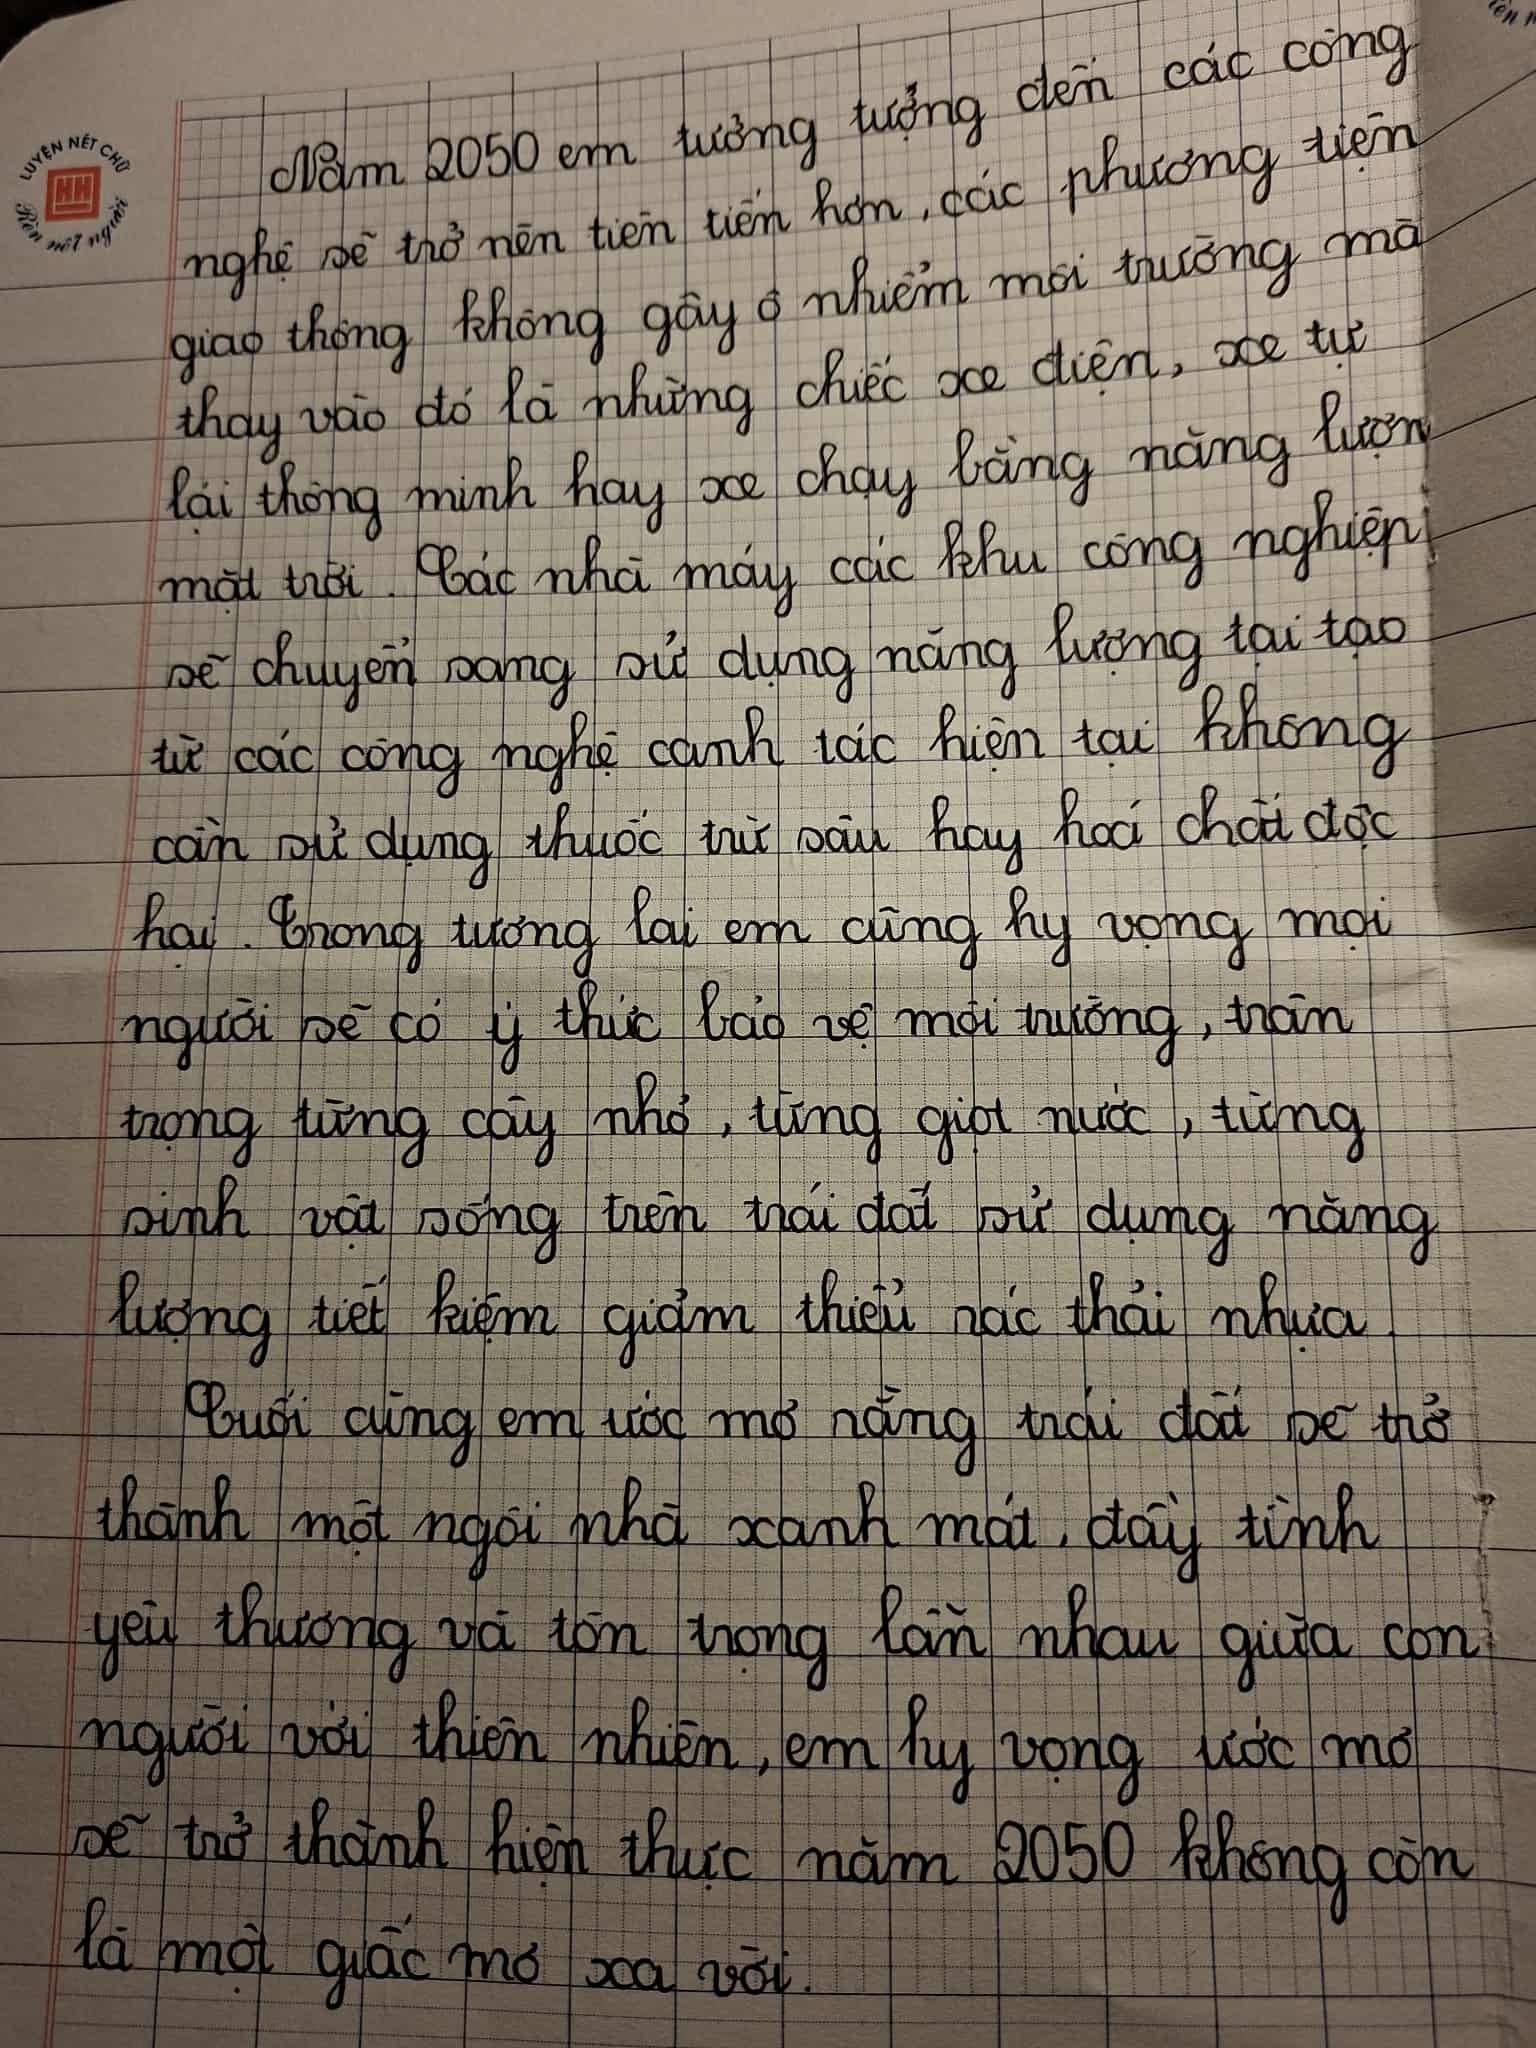 LUYỆN NÉT CHỮ
HH
Rèn nết người
Năm 2050 em tưởng tưởng đến các công
nghệ sẽ trở nên tiên tiến hơn, các phương tiện
giao thông không gây ô nhiễm môi trường mà
thay vào đó là những chiếc xe điện, xe tự
lại thông minh hay xe chạy bằng năng lượn
mặt trời. Các nhà máy các khu công nghiệp
sẽ chuyển sang sử dụng năng lượng tại tạo
từ các công nghệ canh tác hiện tại không
cần sử dụng thuốc trừ sâu hay hoá chất độc
hại. Trong tương lai em cũng hy vọng mọi
người sẽ có ý thức bảo vệ môi trường, trân
trọng từng cây nhỏ, từng giọt nước, từng
sinh vật sống trên trái đất sử dụng năng
lượng tiết kiệm giảm thiểu rác thải nhựa.
Cuối cùng em ước mơ rằng trái đất sẽ trở
thành một ngôi nhà xanh mát, đầy tình
yêu thương và tôn trọng lẫn nhau giữa con
người với thiên nhiên, em hy vọng ước mơ
sẽ trở thành hiện thực năm 2050 không còn
là một giấc mơ xa vời.